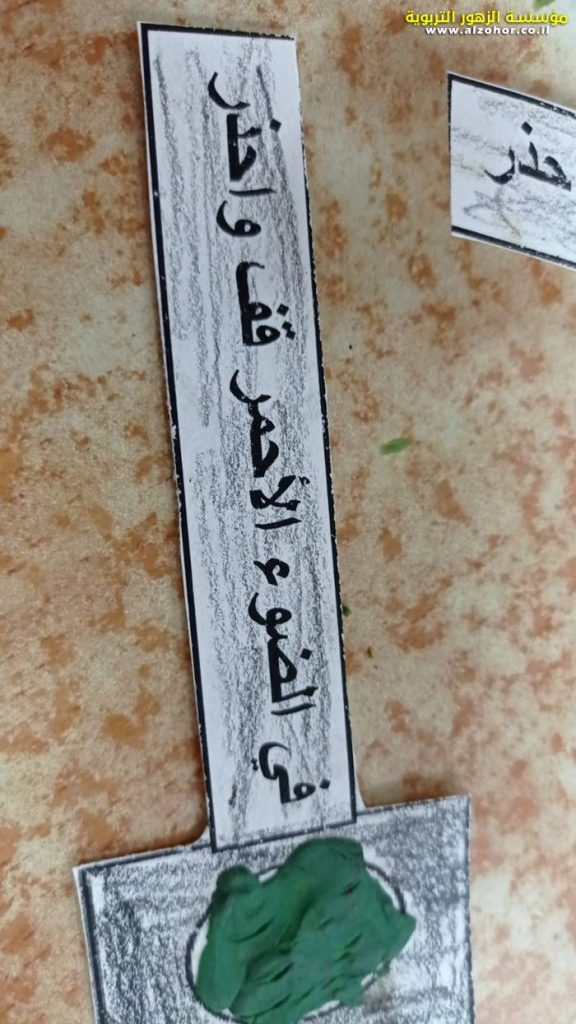 مؤسسة الزهور التربوية
www.alzohor.co.il
في الضوء الأحمر قف واحذر
حذر